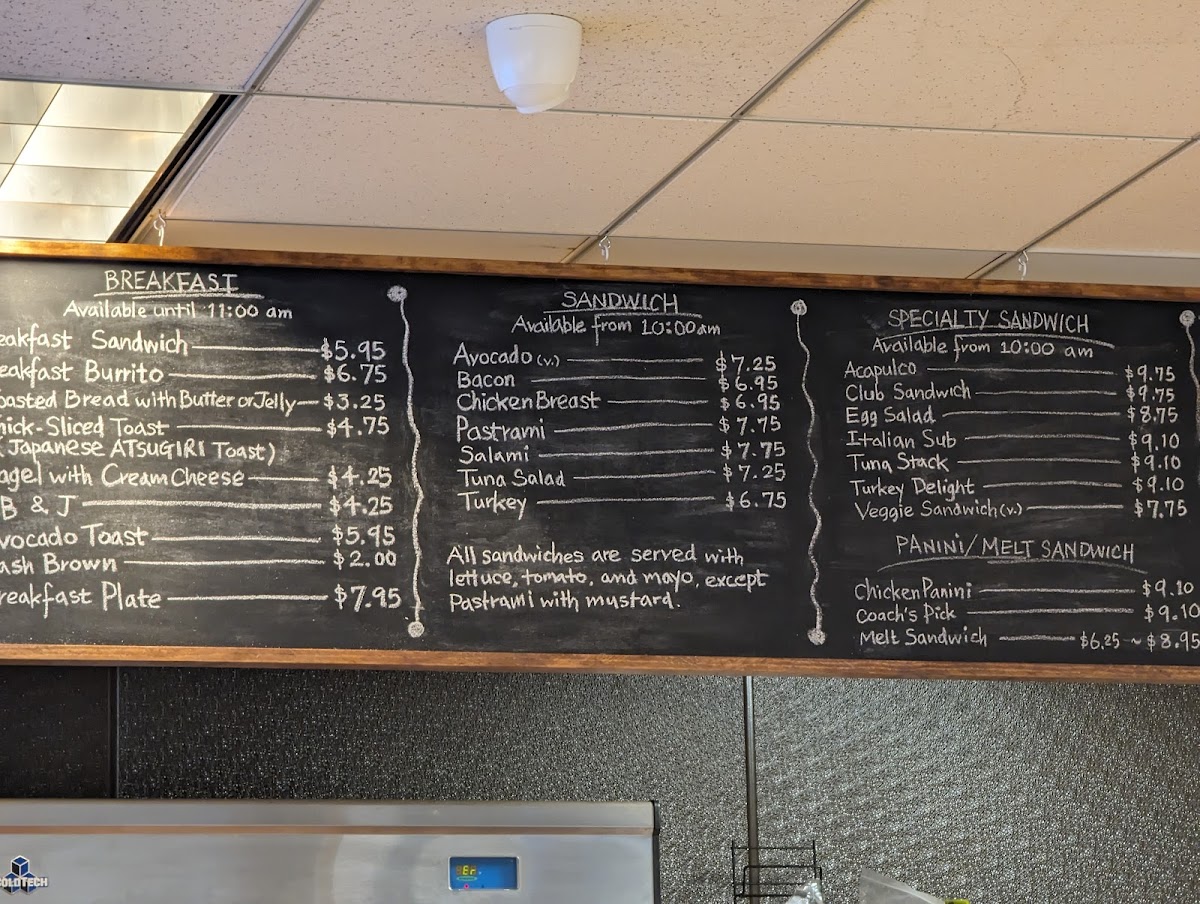 BREAKFAST
Available until 11:00 am
eakfast Sandwich $5.95
eakfast Burrito $6.75
oasted Bread with Butter or Jelly $3.25
hick-Sliced Toast $4.75
(Japanese ATSUGIRI Toast)
agel with Cream Cheese $4.25
B & J $4.25
vocado Toast $5.95
ash Brown $2.00
reakfast Plate $7.95
SANDWICH
Available from 10:00 am
Avocado (v.) $7.25
Bacon $6.95
Chicken Breast $6.95
Pastrami $7.75
Salami $7.75
Tuna Salad $7.25
Turkey $6.75
All sandwiches are served with
lettuce, tomato, and mayo, except
Pastrami with mustard.
SPECIALTY SANDWICH
Available from 10:00 am
Acapulco $9.75
Club Sandwich $9.75
Egg Salad $8.75
Italian Sub $9.10
Tuna Stack $9.10
Turkey Delight $9.10
Veggie Sandwich (v.) $7.75
PANINI/MELT SANDWICH
Chicken Panini $9.10
Coach's Pick $9.10
Melt Sandwich $6.25 ~ $8.95
COLDTECH